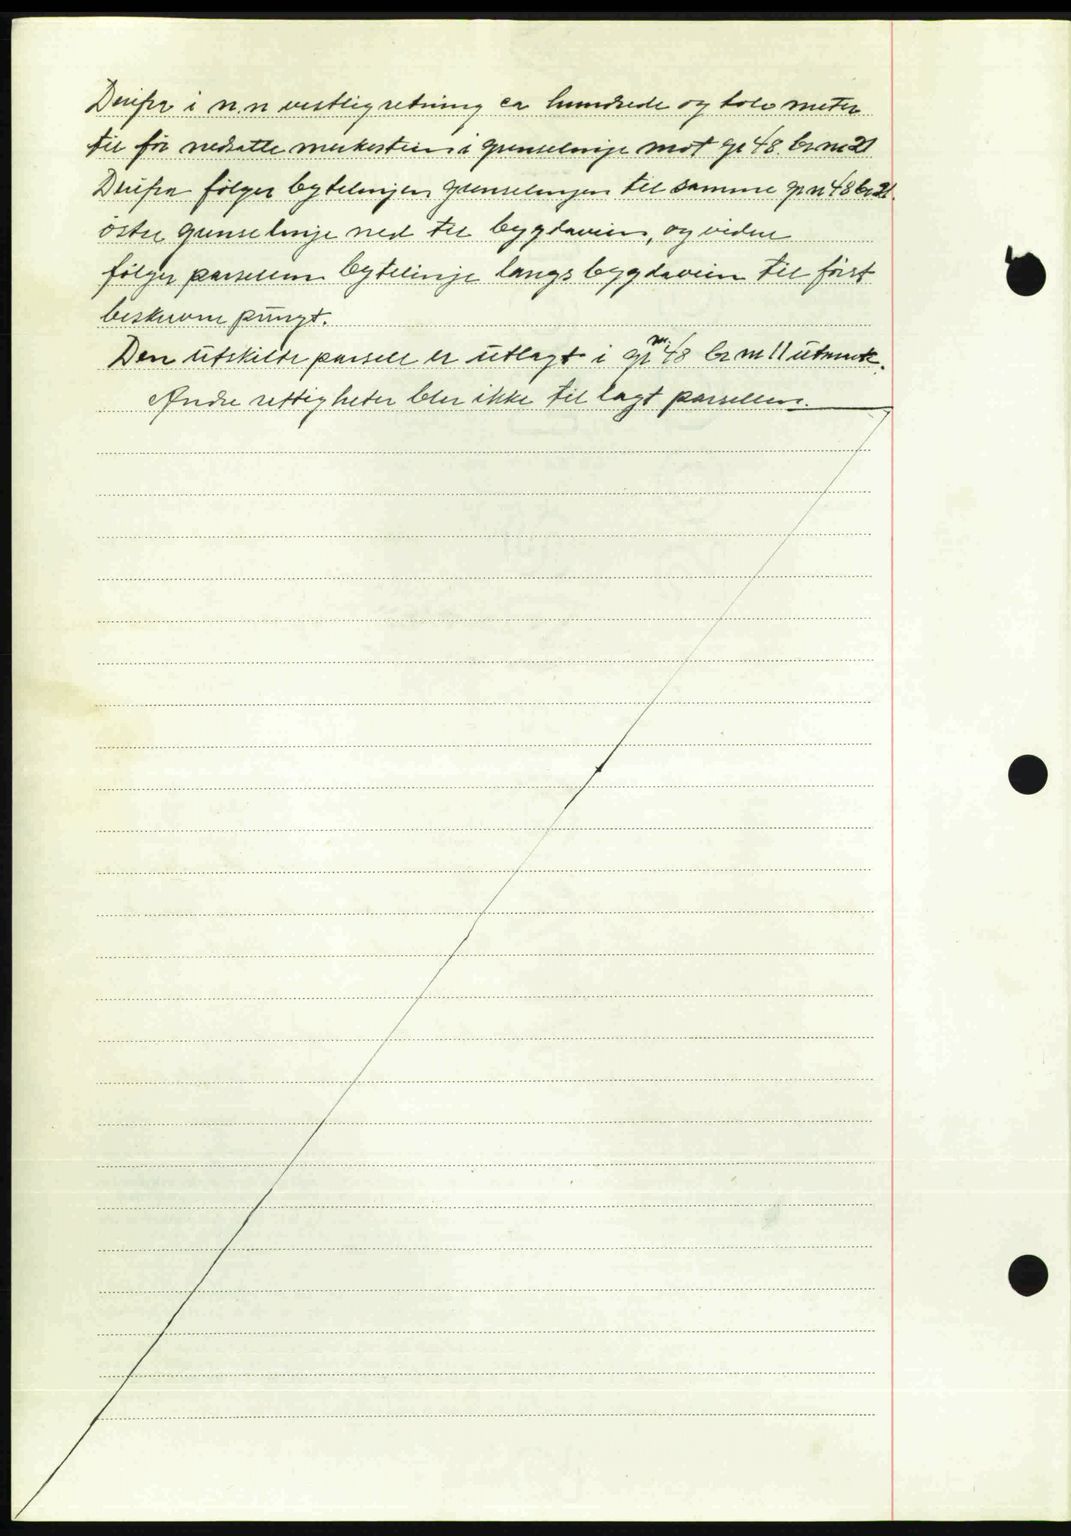 Derifra i n.n vestlig retning ca hundrede og tolv meter
til før nedsatte merkesten i grenselinje mot gr 48. br nr 21
Derifra følger bytelinjen grenselinjen til samme gr nr 48 br 21.
østre grenselinje ned til bygdaveien, og videre
følger parsellens bytelinje langs bygdaveien til først
beskrevne pungt.
Den utskilte parsell er utlagt i gr nr 48 br nr 11 utmark.
Andre rettigheter blir ikke til lagt parsellen.